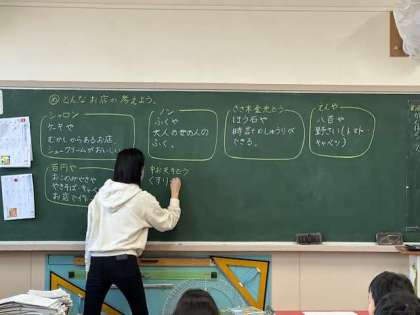 めどんなお店か考えよう。
シャロン
ケーキや
むかしからあるお店。
シュークリームがおいしい
ノン
ふくや
大人の女の人の
ふく。
ささ木金光どう
ほう石や
時計のしゅうりが
できる。
八百や
野さい(トマト・
キャベツ)
百円や
おこのみやきや
やきそば
お店で
くすり